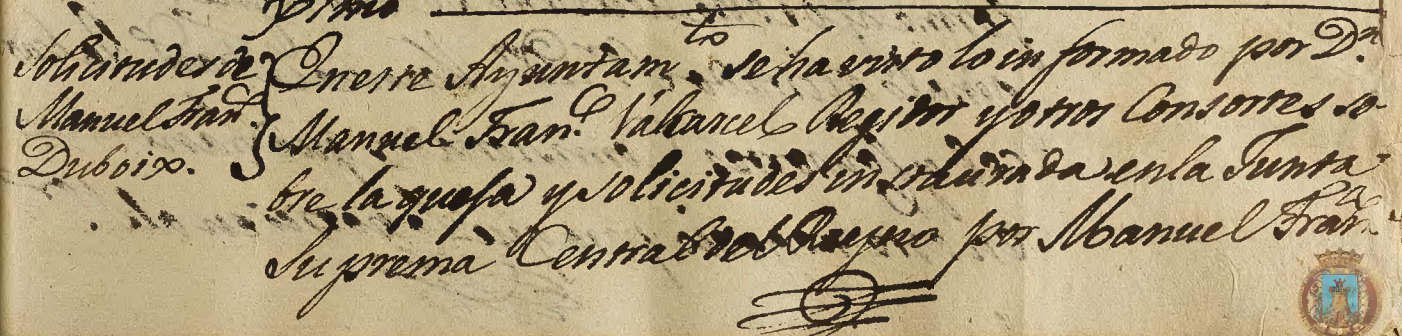 Solicitudes de
Manuel Fran.co
Duboix.
En este Ayuntam.to se ha visto lo informado por D.n
Manuel Fran.co Valcarcel Regidor y otros Consortes so-
bre la quefa y solicitudes instaurada en la Junta
Suprema Central del Reyno por Manuel Fran.co